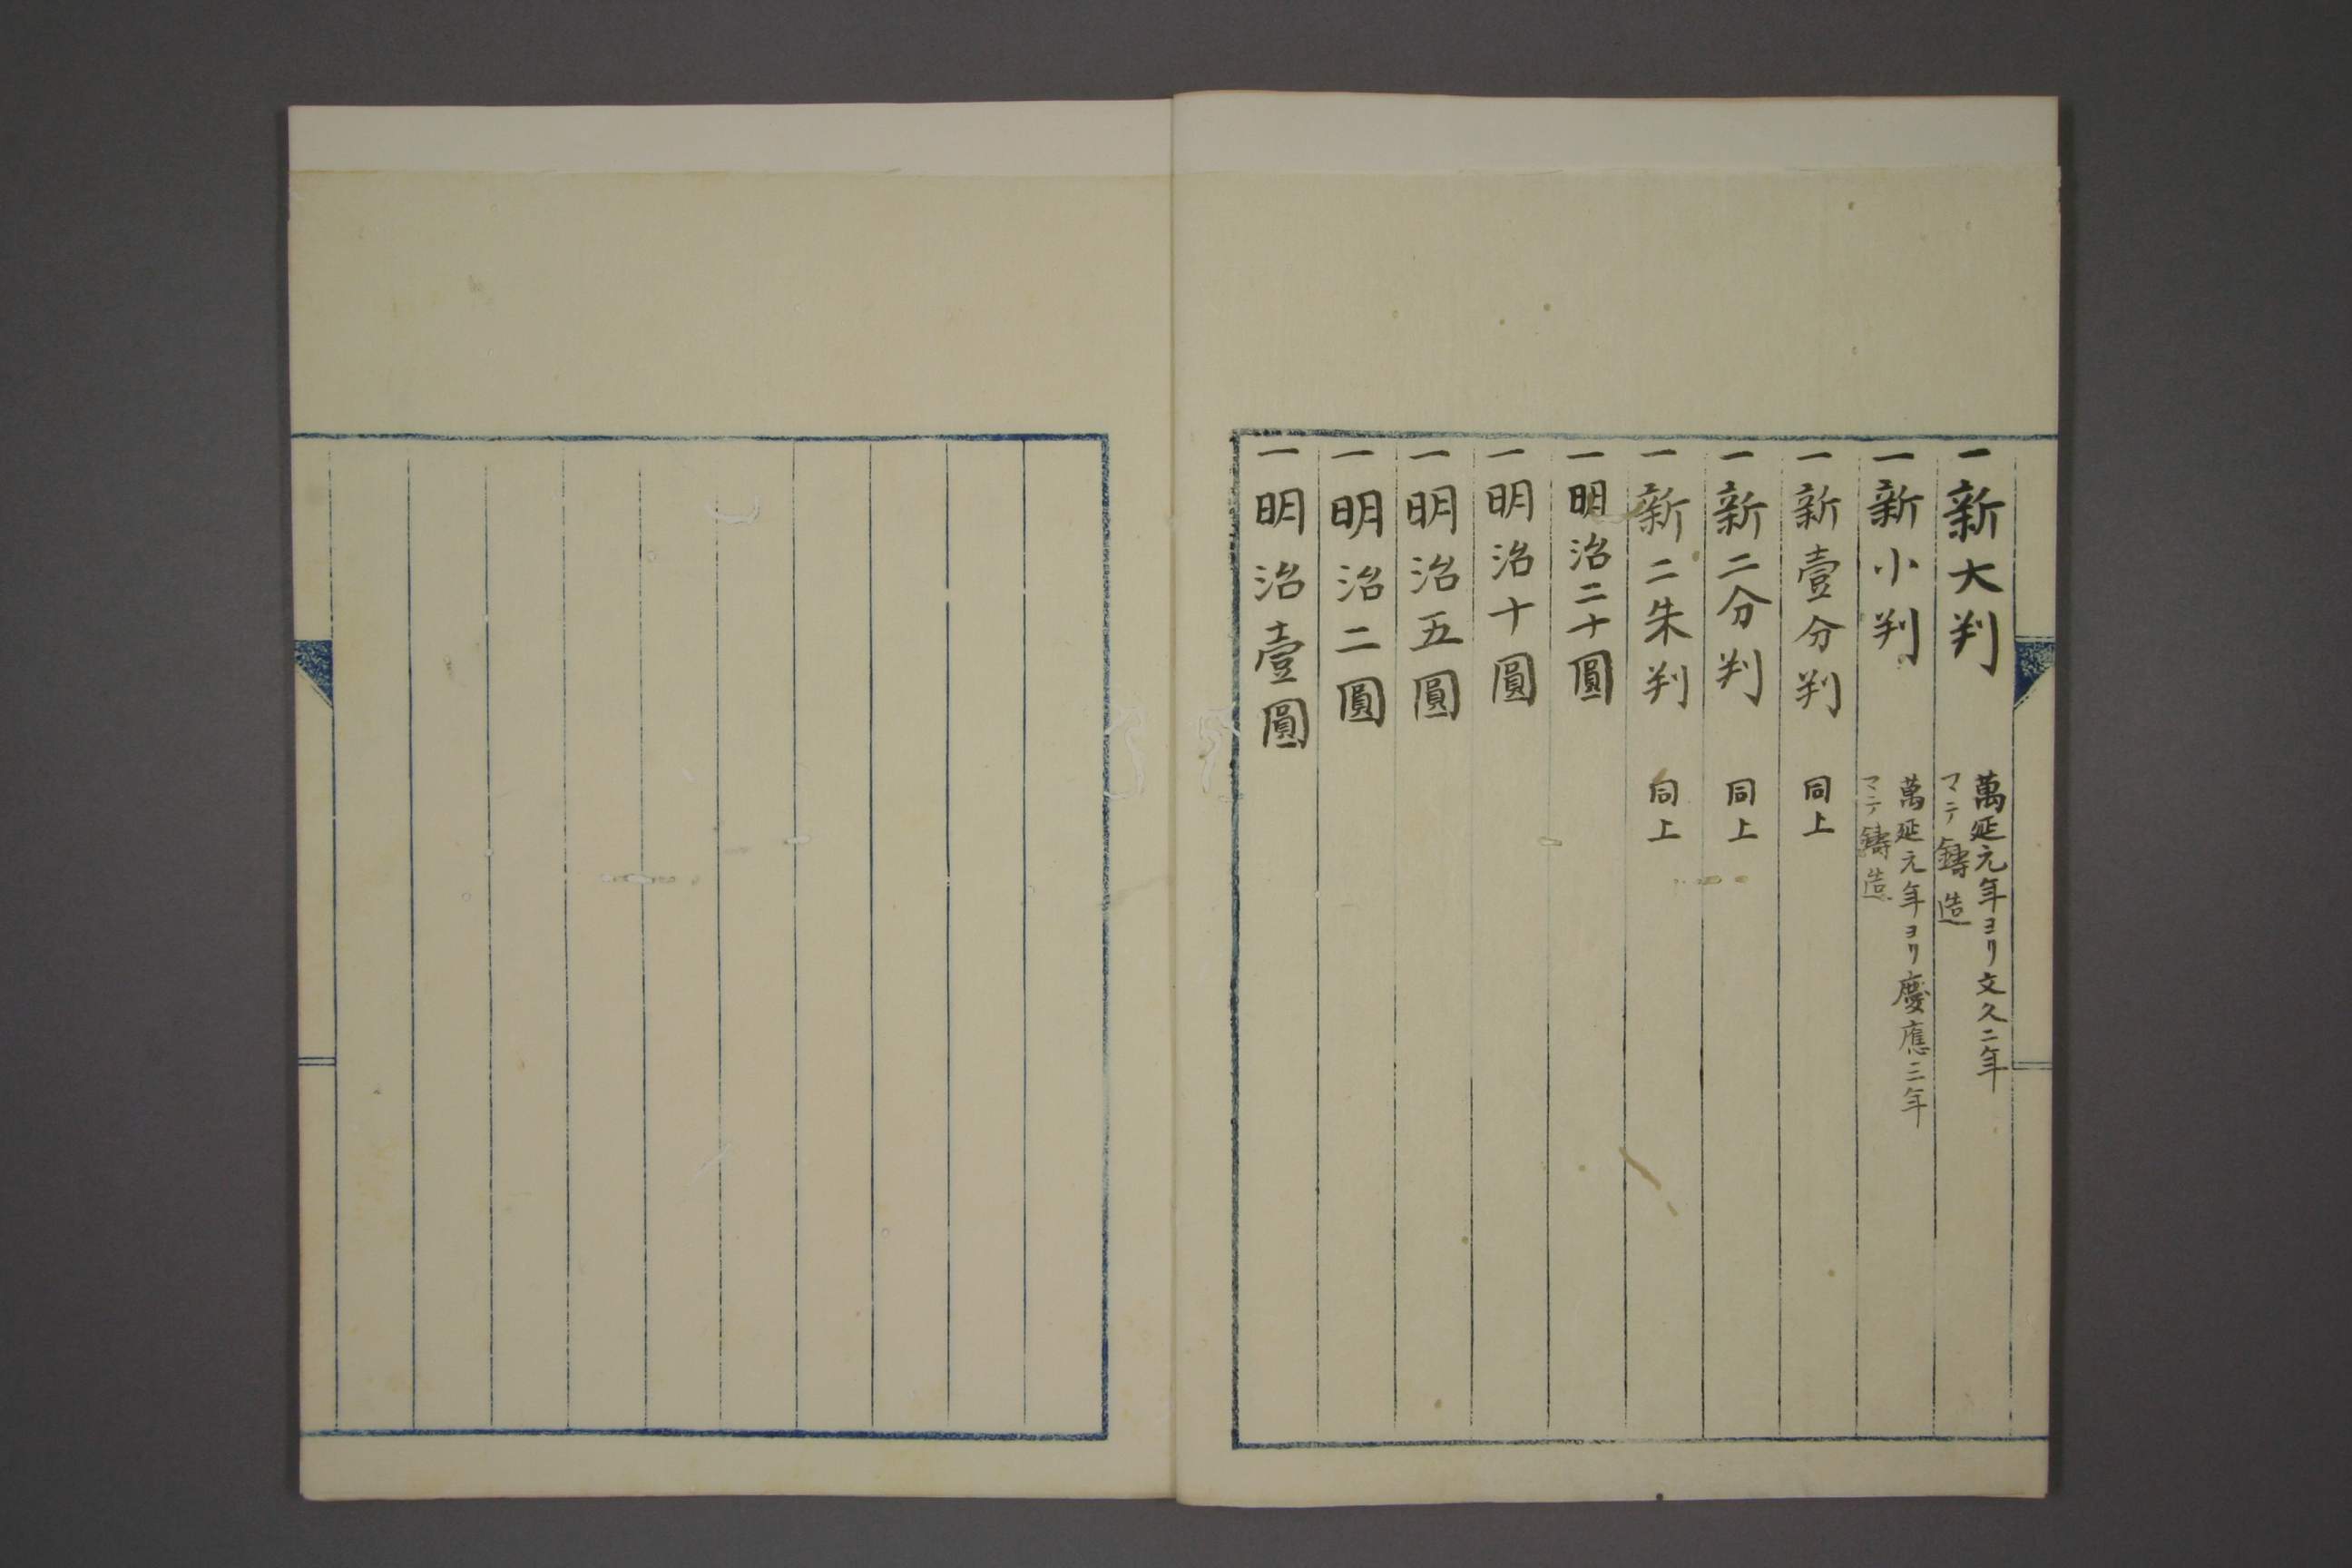 一新大判
萬延元年ヨリ文久二年
マテ鋳造
一新小判
萬延元年ヨリ慶應三年
マテ鋳造
一新壹分判 同上
一新二分判 同上
一新二朱判 同上
一明治二十圓
一明治十圓
一明治五圓
一明治二圓
一明治壹圓